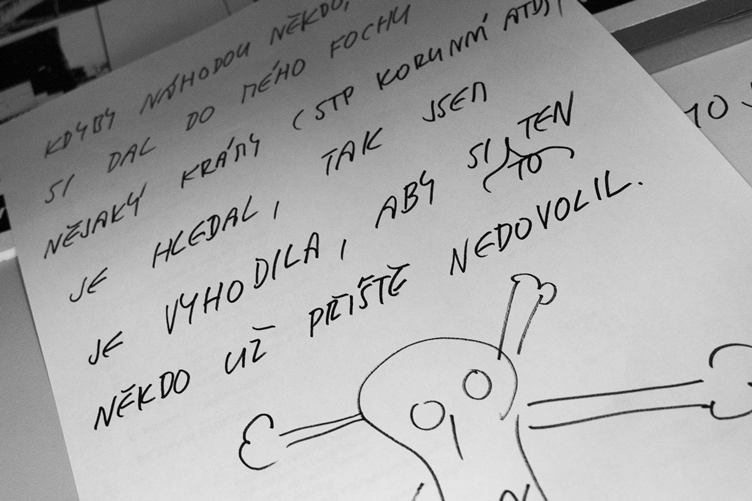 KDYBY NÁHODOU NĚKDO,
SI DAL DO MÉHO FOCHU
NĚJAKÝ KRÁMY (STP KORUNNÍ ATD)
JE HLEDAL, TAK JSEM
JE VYHODILA, ABY SI TEN
TO
NĚKDO UŽ PŘÍŠTĚ NEDOVOLIL.
10